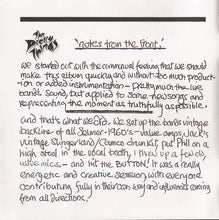 The
"notes from the front"
we started out with the communal feeling that we should
make this album quickly and without too much product-
ion or added instrumentation - Pretty much the live
bands sound, but applied to some new songs and
representing the moment as truthfully as possible.
and that's what we did. We set up the bare vintage
backline of all Selmer-1960's-valve amps, Jack's
vintage Slingerland/Camco drum kit, put Phil on a
high stool in the vocal booth, I lived up a few old
valve mics - and hit the BUTTON! it was a really
energetic and creative session with everyone
contributing fully in their own way and influences coming
from all Directions!